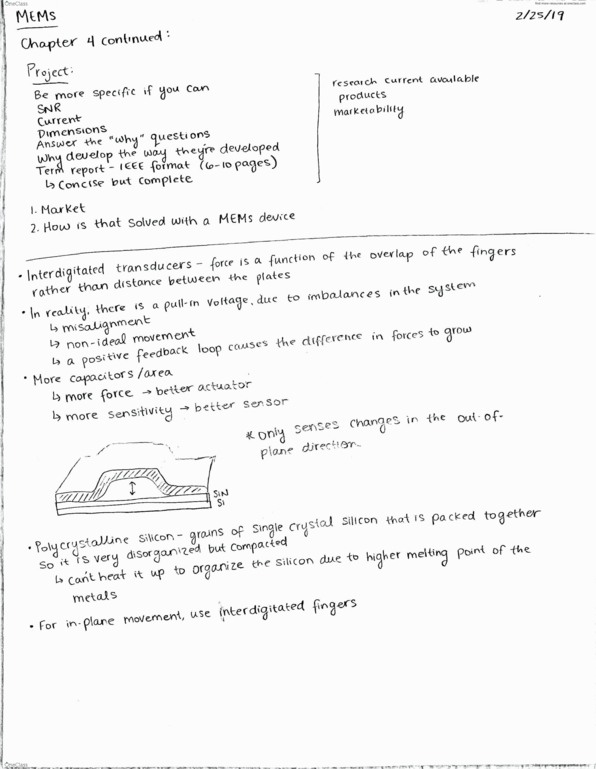 OneClass
MEMs
2/25/19
Chapter 4 continued:
Project:
Be more specific if you can
SNR
Current
Dimensions
Answer the "why" questions
Why develop the way they're developed
Term report - IEEE format (6-10 pages)
↳ Concise but complete
research current available
products
marketability
1. Market
2. How is that solved with a MEMs device
• Interdigitated transducers - force is a function of the overlap of the fingers
rather than distance between the plates
• In reality, there is a pull-in voltage, due to imbalances in the system
↳ misalignment
↳ non-ideal movement
↳ a positive feedback loop causes the difference in forces to grow
• More capacitors/area
↳ more force → better actuator
↳ more sensitivity → better sensor
* only senses changes in the out-of-
plane direction
SiN
Si
• Polycrystalline silicon - grains of single crystal silicon that is packed together
so it is very disorganized but compacted
↳ can't heat it up to organize the silicon due to higher melting point of the
metals
• For in-plane movement, use interdigitated fingers
OneClass